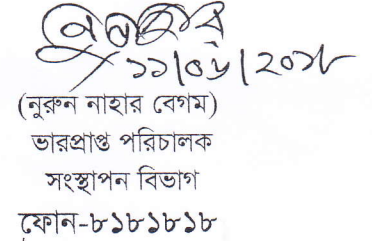 ১১/০৬/২০১৮
(নুরুন নাহার বেগম)
ভারপ্রাপ্ত পরিচালক
সংস্থাপন বিভাগ
ফোন-৮১৮১৮১৮